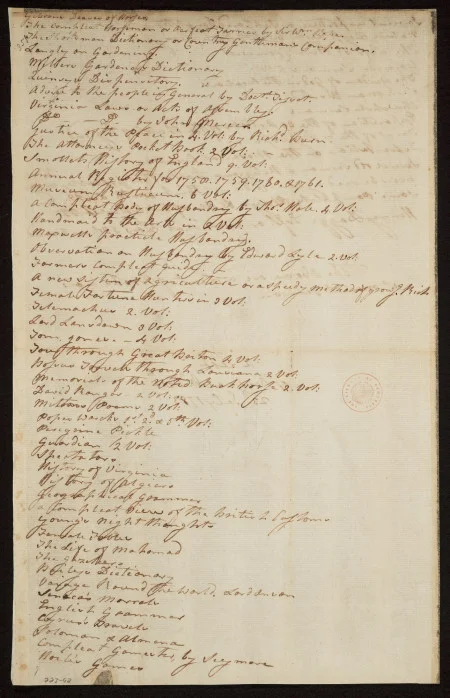 The Compleat Horseman or Perfect Farrier by Sir Wm. Hope
The Sportsman Dictionary or Country Gentlemans Companion
Langley on Gardening
Millers Gardeners Dictionary
Quinceys Dispensatory
Advice to the people in General by Doctr. Tissot.
Virginia Laws or Acts of Assembly
Do — Do by John Mercer
Justice of the Peace in 4 Vol. by Richd. Burn
The Attorneies Pocket Book 2 Vol.
Smollets History of England 9 Vol.
Annual Register for 1758. 1759. 1760. & 1761.
Museum Rusticum. 6 Vol.
A Compleat Body of Husbandry by Thos. Hale. 4 Vol.
Handmaid to the Arts in 2 Vol.
Maxwells practical Husbandry.
Observation on Husbandry by Edward Lyle 2 Vol.
Farmers Compleat guide
A new System of Agriculture or a speedy method of growg. Rich
Female Fortune Hunters in 3 Vol.
Telemachus 2 Vol.
Lord Lansdown 3 Vol.
Tom Jones — 4 Vol.
Tour through Great Britain 4 Vol.
Bossus Travels through Louisiana 2 Vol.
Memorials of the Noted Buckhorse 2 Vol.
David Ranger 2 Vol.
Miltons Poems 2 Vol.
Popes Works 1st 2d & 5th Vol.
Peregrine Pickle
Guardian 2 Vol.
Spectators
History of Virginia
History of Algiers
Geographical Grammar
a Compleat View of the British Customs
Youngs Night thoughts
The Life of Mahomad
The Gazetteer
Baileys Dictionary
Voyage Round the World. Lord Anson
Seneca's Morrals
English Grammar
Cyrus's Travels
Solomon & Almena
Compleat Gamester, by Seymore
Hoyles Games
223-40